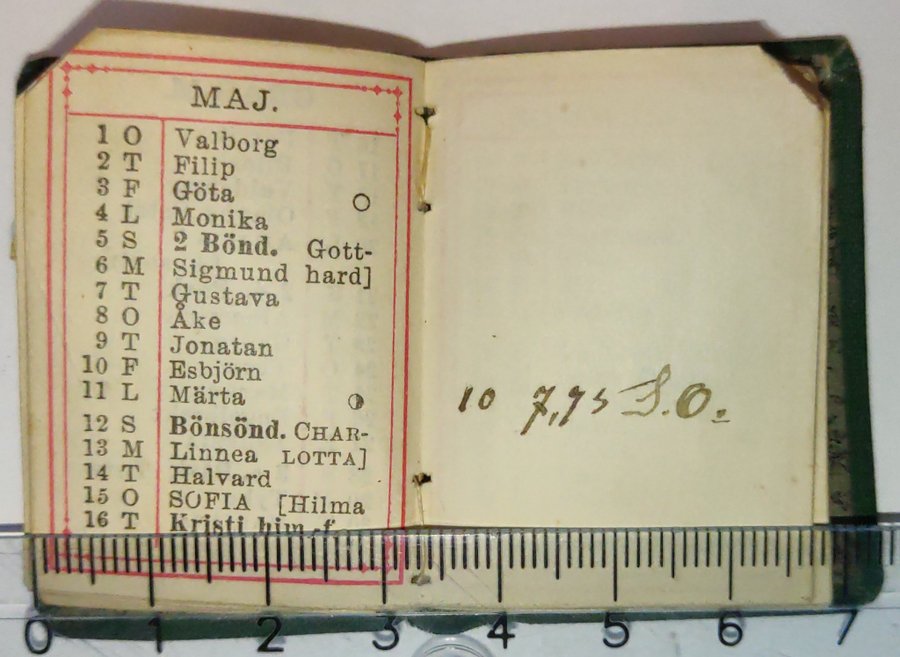 MAJ.
1 O Valborg
2 T Filip
3 F Göta
4 L Monika
5 S 2 Bönd. Gott-
6 M Sigmund hard]
7 T Gustava
8 O Åke
9 T Jonatan
10 F Esbjörn
11 L Märta
12 S Bönsönd. CHAR-
13 M Linnea LOTTA]
14 T Halvard
15 O SOFIA [Hilma
16 T Kristi him.-f.
10 7,75 S.O.
0 1 2 3 4 5 6 7